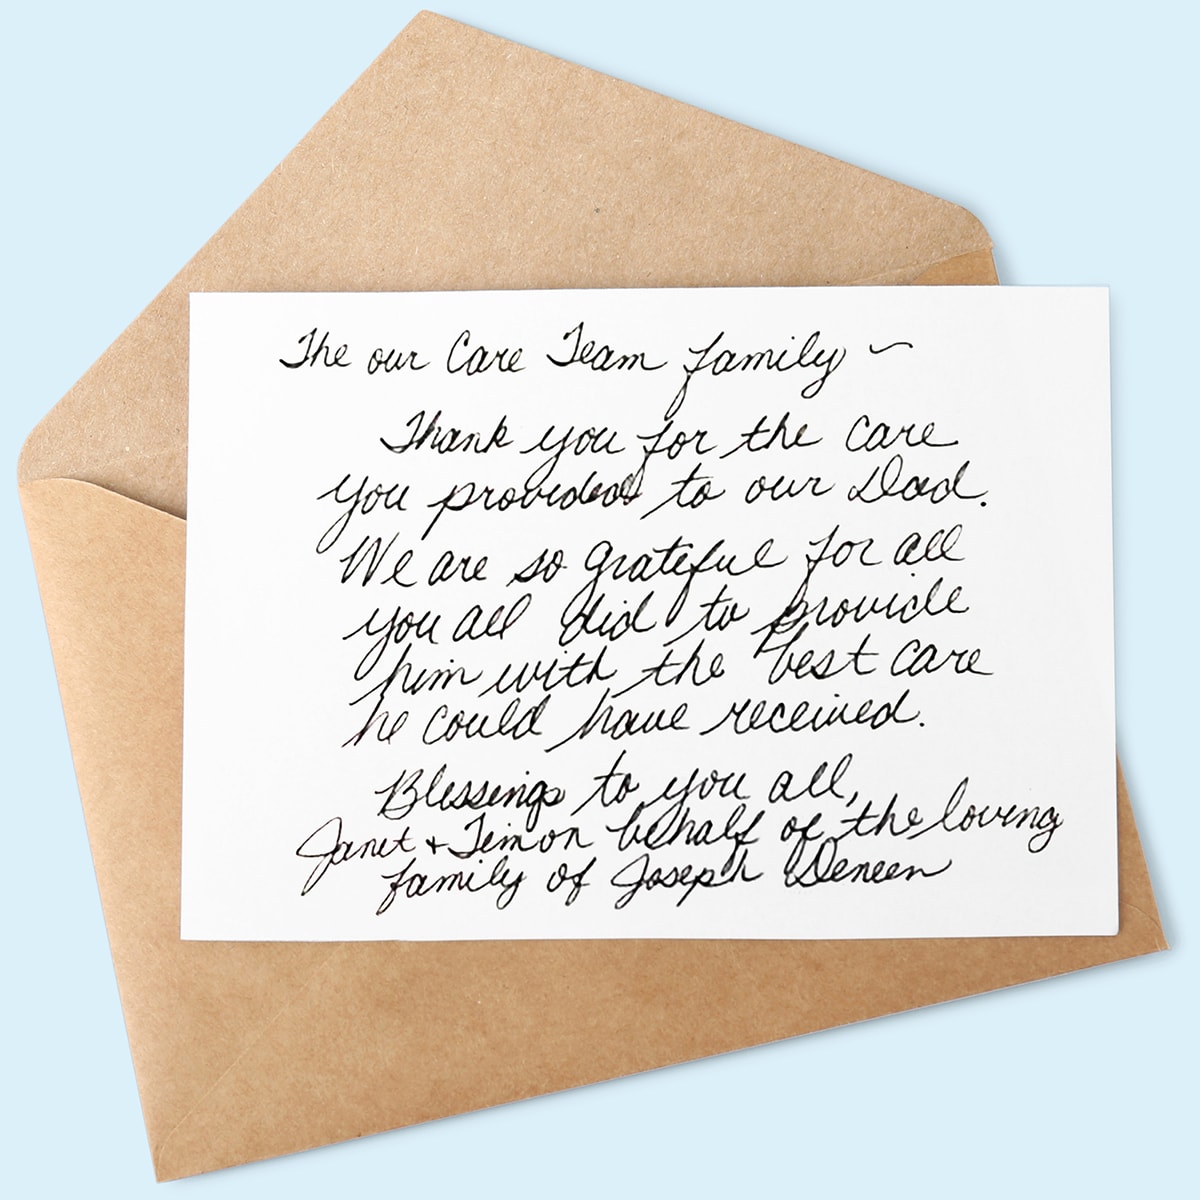 The our Care Team family ~
Thank you for the care
you provided to our Dad.
We are so grateful for all
you all did to provide
him with the best care
he could have received.
Blessings to you all,
Janet + Tim on behalf of the loving
family of Joseph Deneen